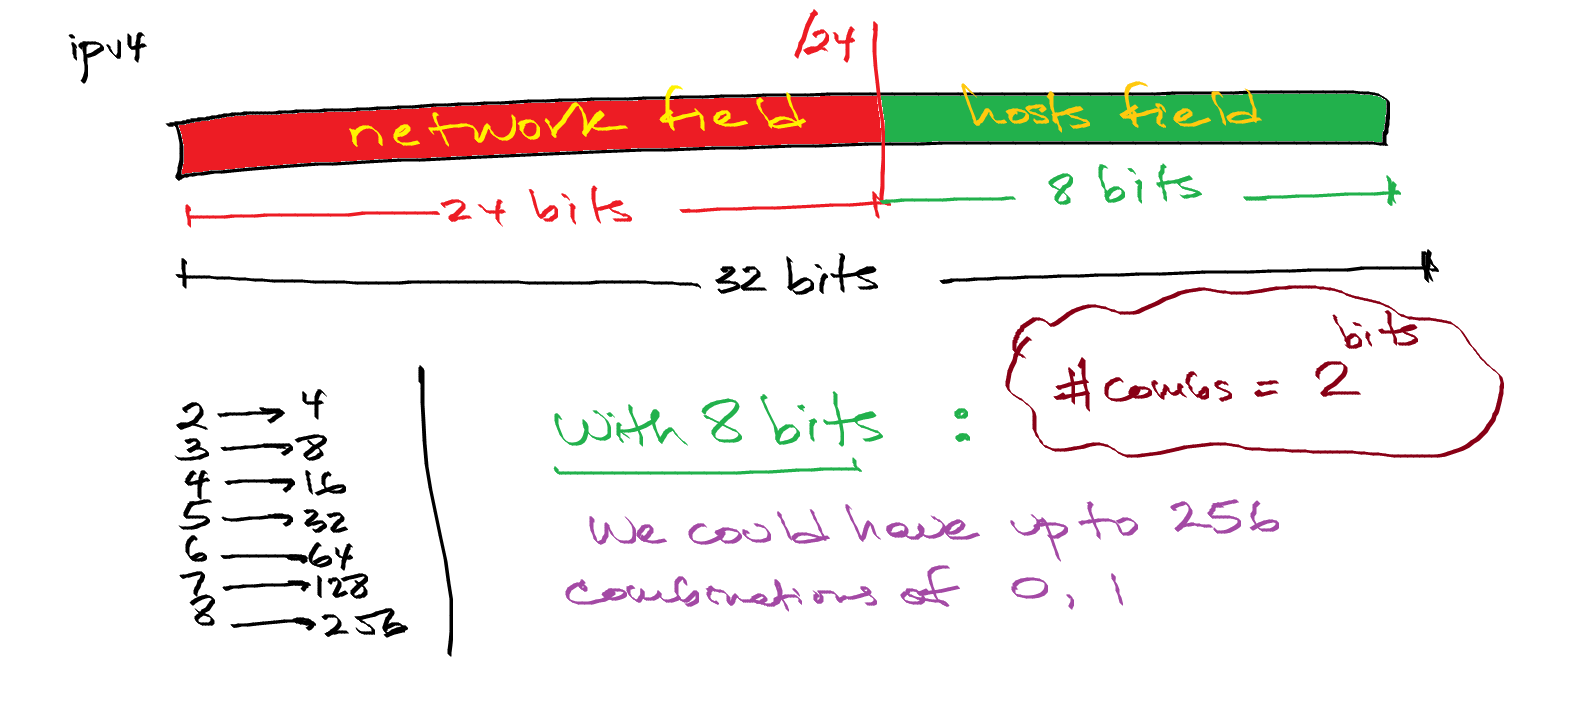 ipv4
/24
network field hosts field
24 bits 8 bits
32 bits
#combs = 2^bits
2 → 4
3 → 8
4 → 16
5 → 32
6 → 64
7 → 128
8 → 256
with 8 bits :
We could have up to 256
combinations of 0, 1